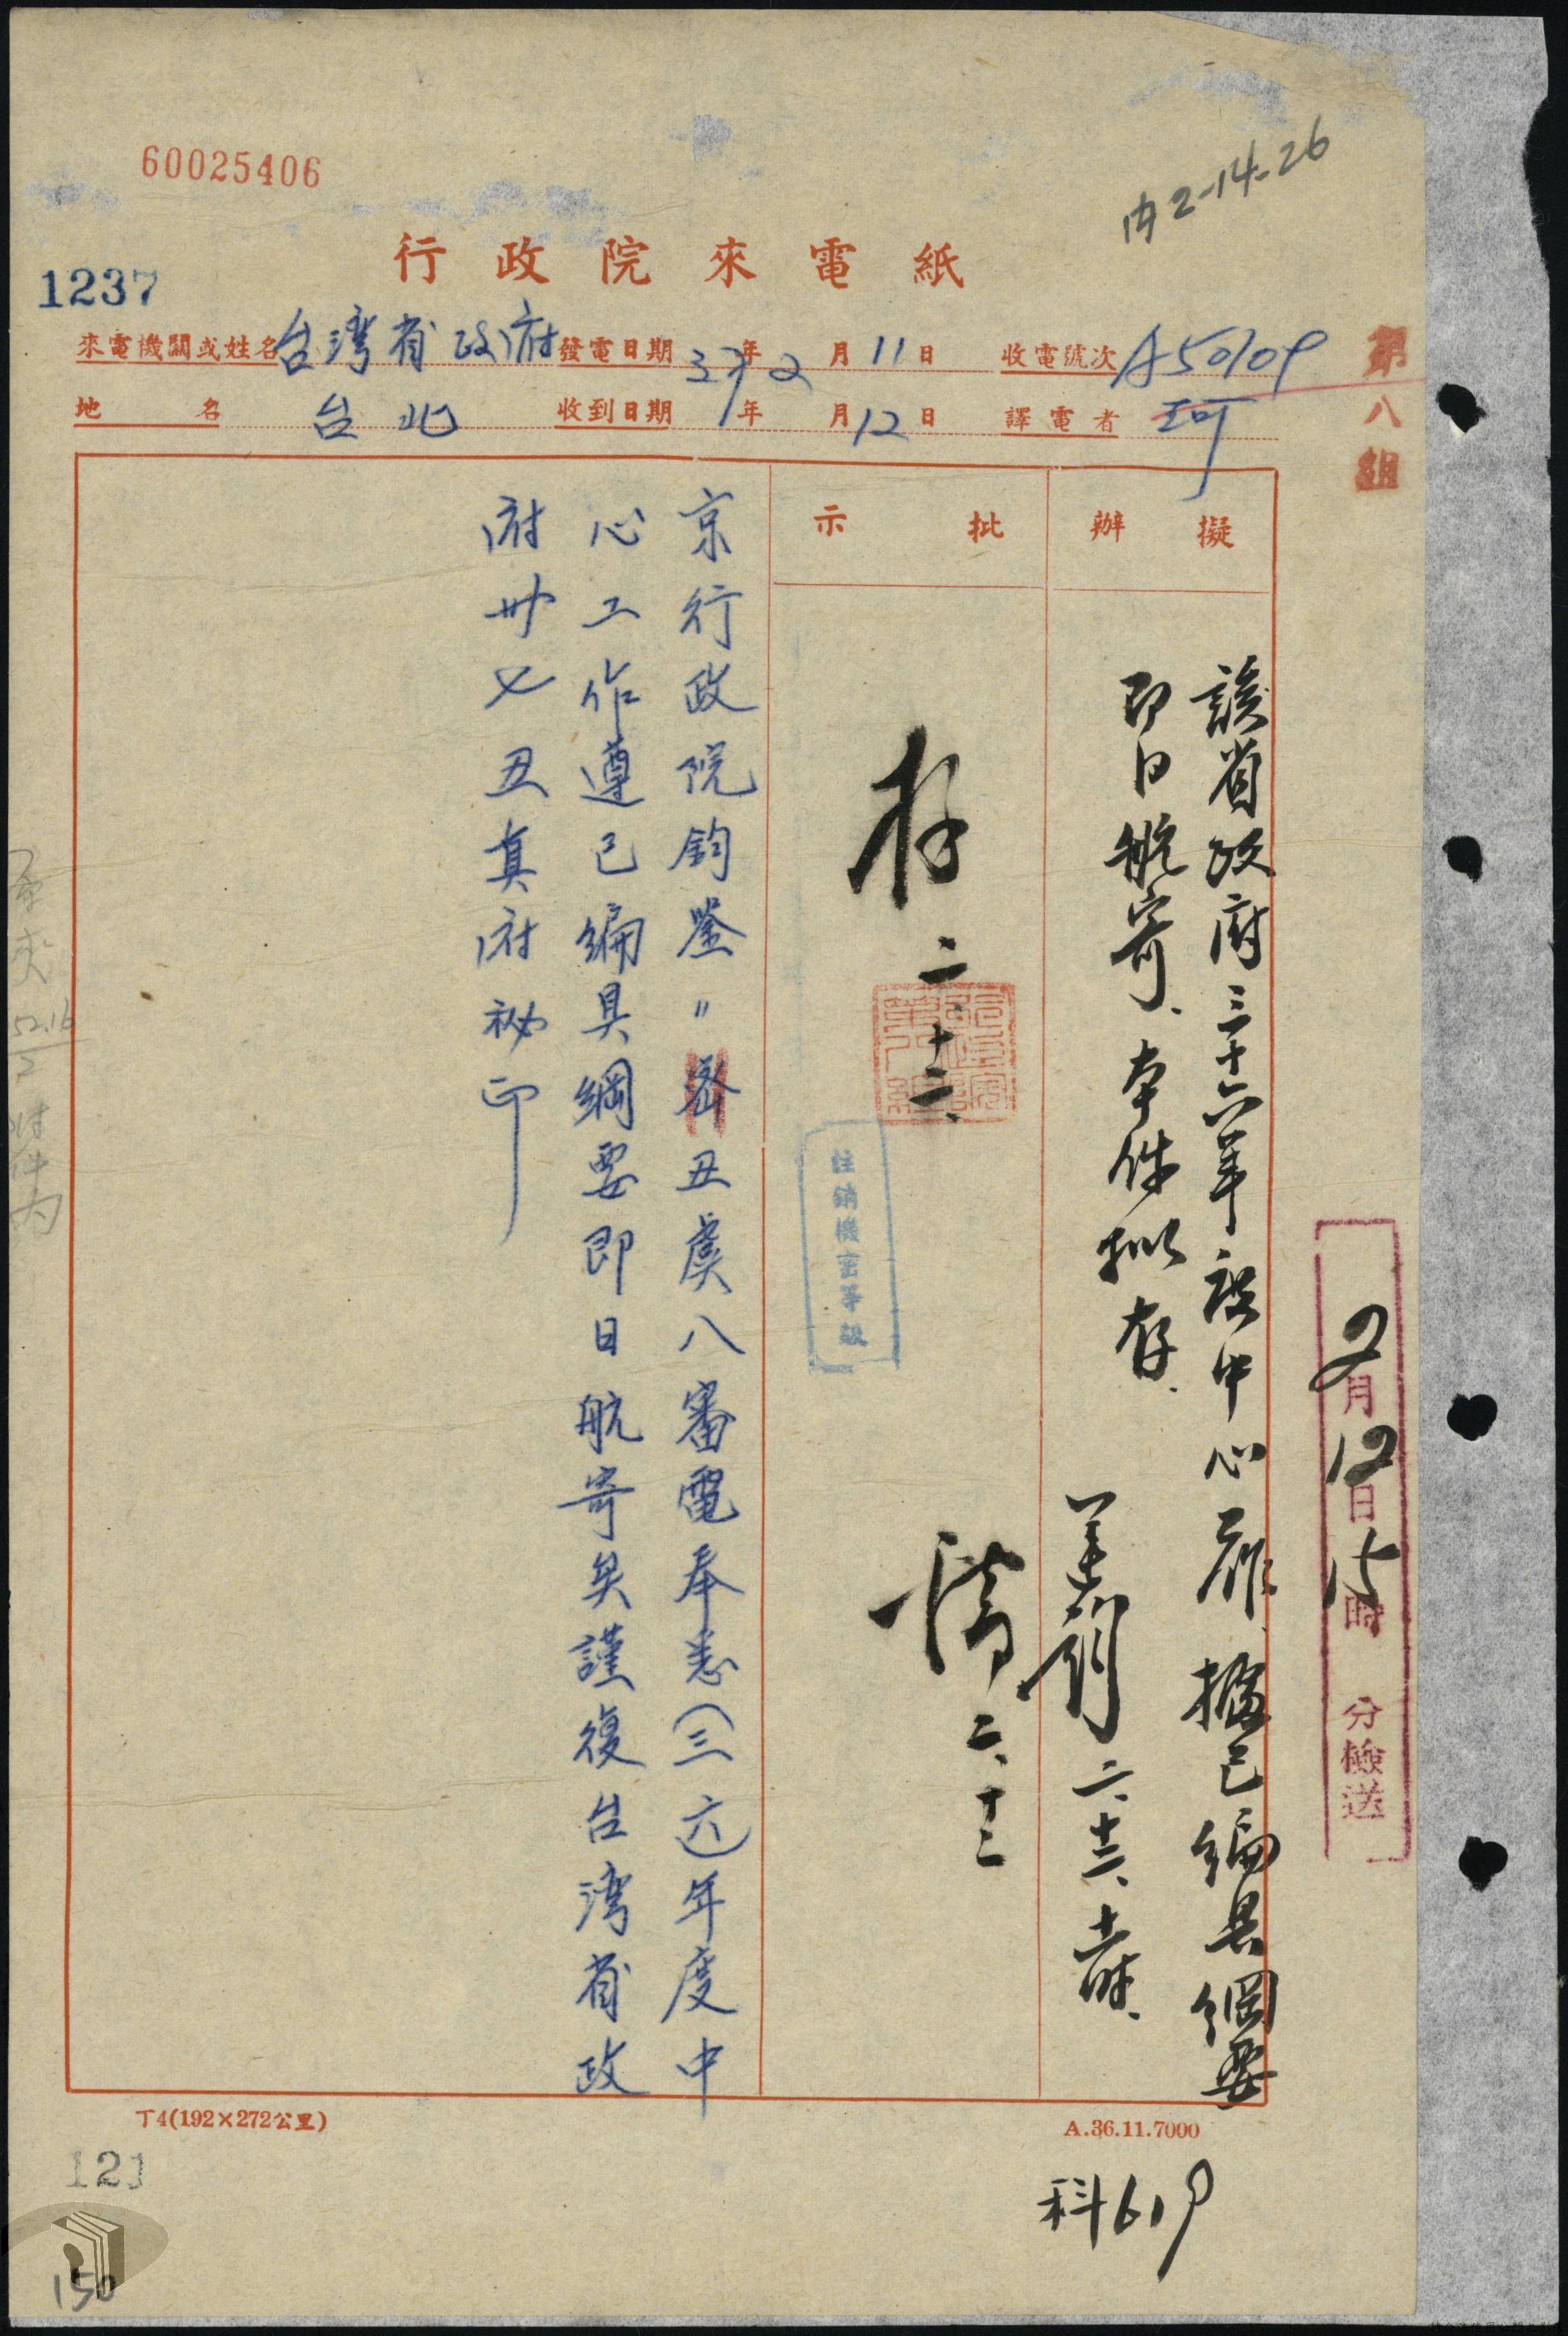 60025406
内2-14-26
1237
行政院來電紙
來電機關或姓名 台湾省政府 發電日期 37年2月11日 收電號次 A50109
地名 台北 收到日期 年 月12日 譯電者
第八組
擬辦
批示
該省政府三十六年度中心工作、據已編具綱要
即日航寄、本件擬存、
二、十二、
存 二、十二、
二、十二
註銷機密等級
京行政院鈞鑒〃密丑虞八審電奉悉(三六)年度中
心工作遵已編具綱要即日航寄矣謹復台湾省政
府卅七丑真府祕印
2月12日15時 分檢送
丁4(192×272公里)
A.36.11.7000
科619
121
150